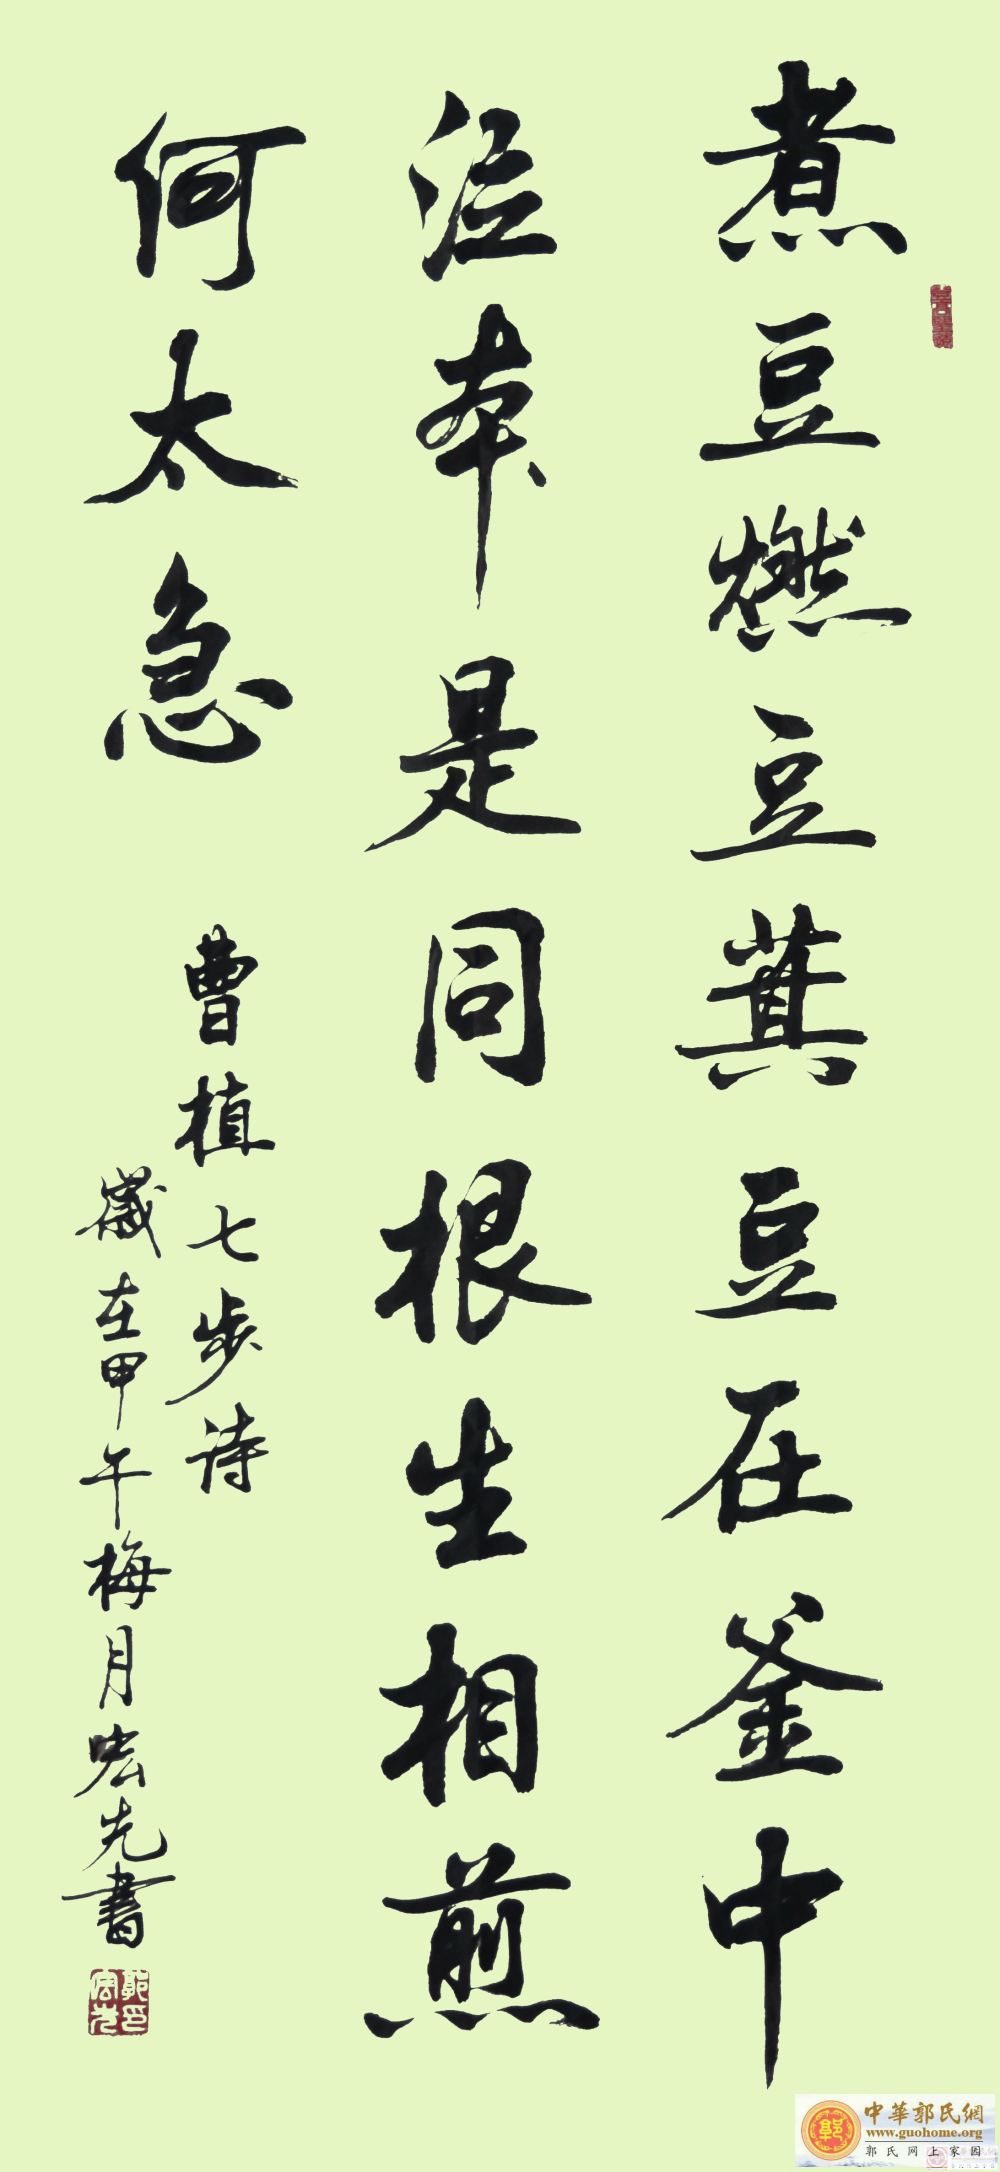 煮豆燃豆萁豆在釜中
泣本是同根生相煎
何太急
曹植七步诗
歲在甲午梅月宏先書
郭印宏先
郭
中華郭氏網
www.guohome.org
郭氏网上家园